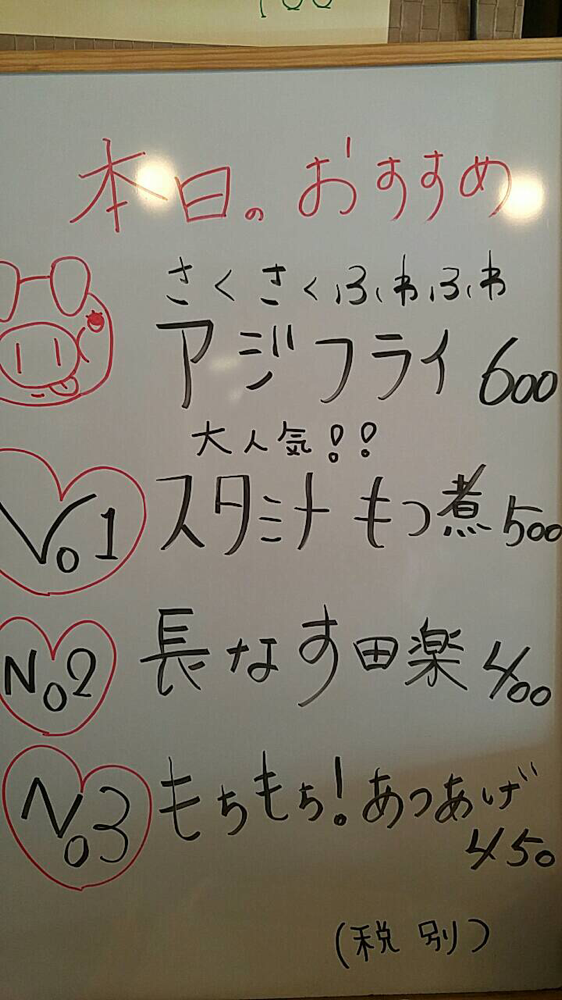 本日のおすすめ
さくさくふわふわ
アジフライ 600
大人気!!
No1 スタミナもつ煮 500
No2 長なす田楽 400
No3 もちもち!あつあげ
450
(税別)